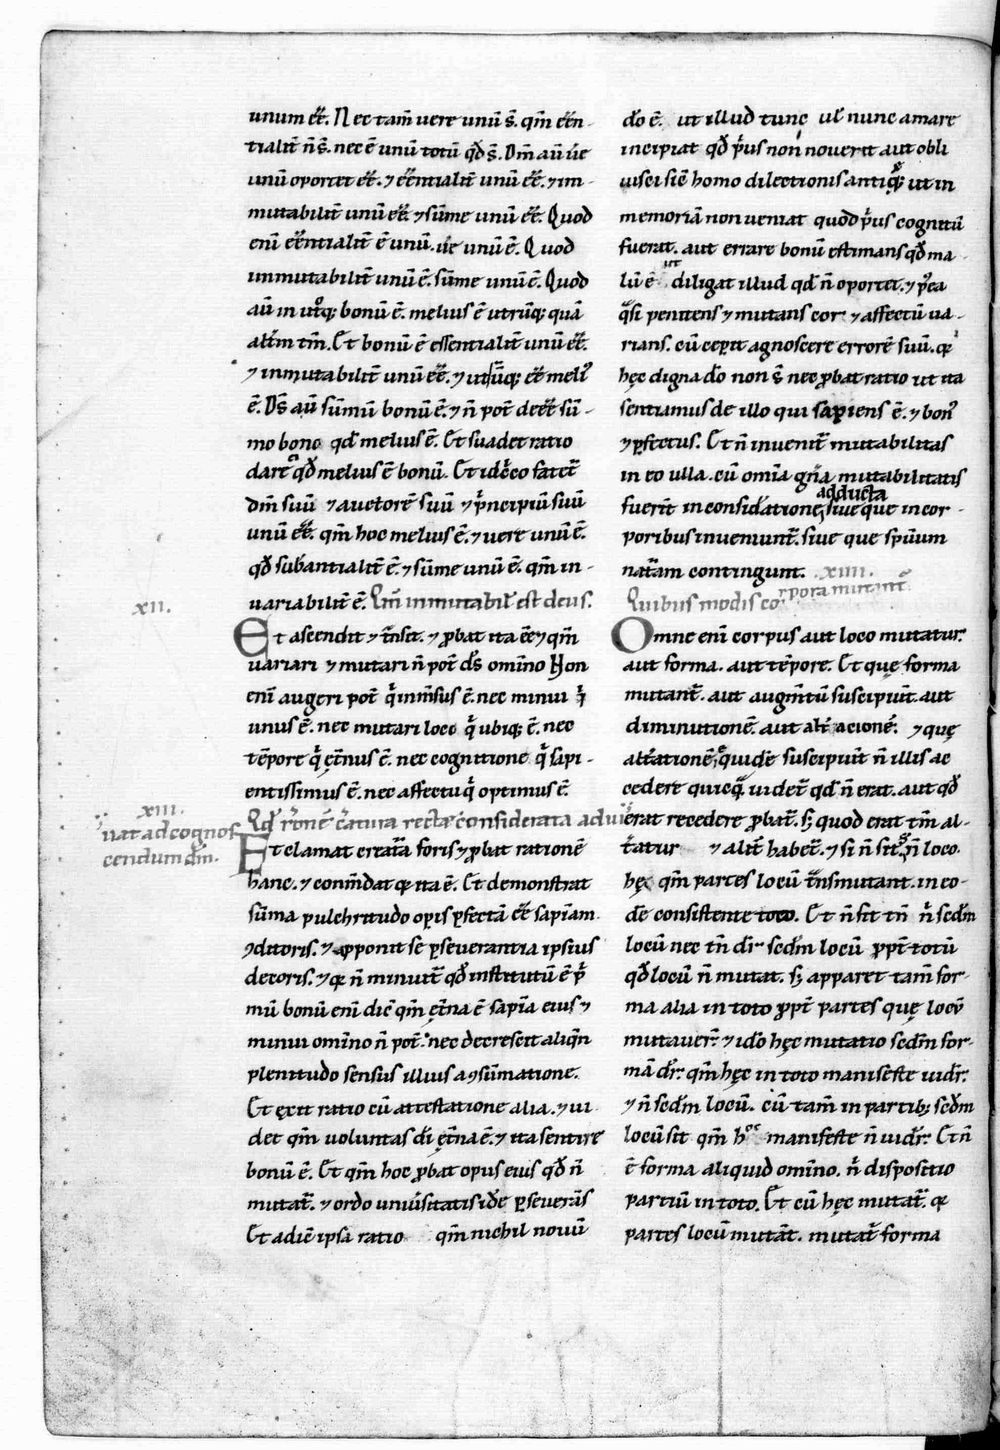 unum eē. Nec tam̄ uere unū s̄. qm̄ eēn-
tialit̄ n̄ s̄. nec ē unū totū qđ s̄. Dm̄ aū ūe
unū oportet eē. ⁊ eēntialit̄ unū eē. ⁊ im-
mutabilit̄ unū eē. ⁊ sūme unū eē. Quod
enī eēntialit̄ ē unū. ūe unū ē. Quod
inmutabilit̄ unū ē. sūme unū ē. Quod
aū in utq; bonū ē. melius ē utrūq; quā
alt̄m tm̄. Et bonū ē essentialit̄ unū eē.
⁊ inmutabilit̄ unū eē. ⁊ utrūq; eē meli᷒
ē. Ds̄ aū sūmū bonū ē. ⁊ n̄ pot̄ deeē sū-
mo bono qđ melius ē. Et suadet ratio
dare qđ melius ē bonū. Et idc̄eo fatet̄
dm̄ suū ⁊ auctorē suū ⁊ p̄ncipiū suū
unū eē. qm̄ hoc melius ē. ⁊ uere unū ē.
qđ substantialit̄ ē. ⁊ sūme unū ē. qm̄ in-
uariabilit̄ ē. Qm̄ inmutabil̄ est deus.
xii.
Et ascendit ⁊ t̄nsit. ⁊ ꝓbat ita eē ⁊ qm̄
uariari ⁊ mutari n̄ pot̄ ds̄ omīno Non
enī augeri pot̄ q̄ inm̄sus ē. nec minui q̄
unus ē. nec mutari loco q̄ ubiq; ē. nec
tēpore q̄ ęt̄nus ē. nec cognitione q̄ sapi-
entissimus ē. nec affectu q̄ optimus ē.
xiii.
Qđ rōne c̄atura recte considerata adui
uat ad cognos
cendum dm̄.
Et clamat creat̄a foris ⁊ ꝓbat rationē
hanc. ⁊ conm̄dat qꝫ ita ē. Et demonstrat
sūma pulchritudo opis ꝑfectā eē sapīam
ꝯditoris. ⁊ apponit se ꝑseuerantia ipsius
decoris. ⁊ qꝫ n̄ minuit̄ qđ institutū ē p̄
mū bonū enī dic̄ qm̄ ęt̄na ē sapīa eius ⁊
minui omīno n̄ pot̄. nec decrescit aliqn̄
plenitudo sensus illius a ꝯsūmatione.
Et exit ratio cū attestatione alia. ⁊ ui-
det qm̄ uoluntas dī ęt̄na ē. ⁊ ita sentire
bonū ē. Et qm̄ hoc ꝓbat opus eius qđ n̄
mutat̄. ⁊ ordo uniūsitatis idē ꝑseuerās
Et adic̄ ipsā ratio qm̄ nichil nouū
do ē. ut illud tunc ul̄ nunc amare
incipiat qđ p̄us non nouerit aut obli
uisci sic̄ homo dilectionis antiq̄ ut in
memoriā non ueniat quod p̄us cognitū
fuerat. aut errare bonū estimans qđ ma-
lū ē ut diligat illud qđ n̄ oportet. ⁊ p̄ea
q̄si penitens ⁊ mutans cor ⁊ affectū ua-
rians. cū ceperit agnoscere errorē suū. qꝫ
hęc digna do non s̄ nec ꝓbat ratio ut ita
sentiamus de illo qui sapiens ē. ⁊ bon᷒
⁊ ꝑfectus. Et n̄ inuenit̄ mutabilitas
in eo ulla. cū omīa gn̄a mutabilitatis
adducta
fuerīt in consid̄atione, siue que in cor-
poribus inueniunt̄. siue que spūum
nat̄am contingunt. xiiii.
Quibus modis corpora mutant̄
Omne enī corpus aut loco mutatur
aut forma. aut tēpore. Et quę forma
mutant̄. aut augm̄tū suscipiūt. aut
diminutionē. aut alt̄acionē. ⁊ quę
alt̄ationē quidē suscipiūt n̄ illis ac
cedere quicq̄ uidet̄ qđ n̄ erat. aut qđ
erat recedere ꝓbat̄. s; quod erat tm̄ al-
t̄atur ⁊ alit̄ habet̄. ⁊ si n̄ sit n̄ loco.
hęc qm̄ partes locū t̄nsmutant. in eo-
dē consistente toto. Et n̄ fit tn̄ n̄ scđm
locū nec tn̄ dr̄ scđm locū ꝓpt̄ totū
qđ locū n̄ mutat. s; apparet tam̄ for-
ma alia in toto ꝓpt̄ partes quę locū
mutauer̄. ⁊ ido hęc mutatio scđm for-
mā dr̄. qm̄ hęc in toto manifeste uidr̄.
⁊ n̄ scđm locū. cū tam̄ in partib; scđm
locū sit qm̄ hoc manifeste n̄ uidr̄. Et n̄
ē forma aliquid omīno. n̄ dispositio
partiū in toto. Et cū hęc mutat̄ qꝫ
partes locū mutāt. mutat̄ forma